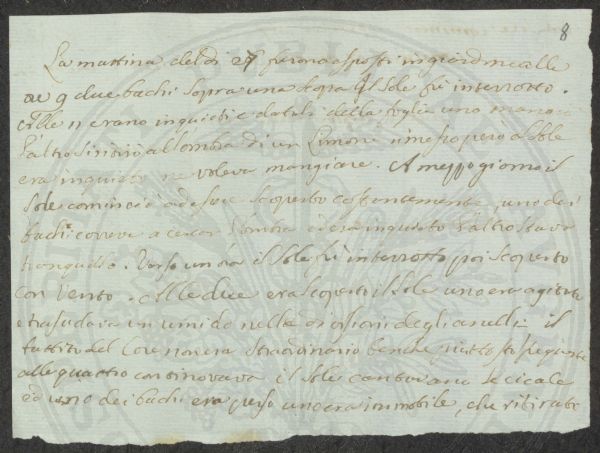 8
La mattina del dì 27 furono esposti in giardino alle
ore 9 due bachi sopra una scopa Il Sole fù interrotto.
alle 11 erano inquieti e datali della foglia uno mangiò
l'altro si ritirò all'ombra di un Limone rimesso però al Sole
era inquieto ne voleva mangiare. A mezzo giorno il
Sole cominciò ad essere scoperto costantemente, uno dei
bachi correva a cercar l'ombra ed era inquieto l'altro stava
tranquillo. Verso un'ora il Sole fù interrotto poi scoperto
con vento. alle due era scoperto il Sole uno era agitato
e trasudava un umido nelle divisioni degli anelli il
battito del Core non era straordinario benche molto
alle quattro continovava il Sole cantavano le cicale
ed uno dei bachi era perso uno era immobile, che ritirato